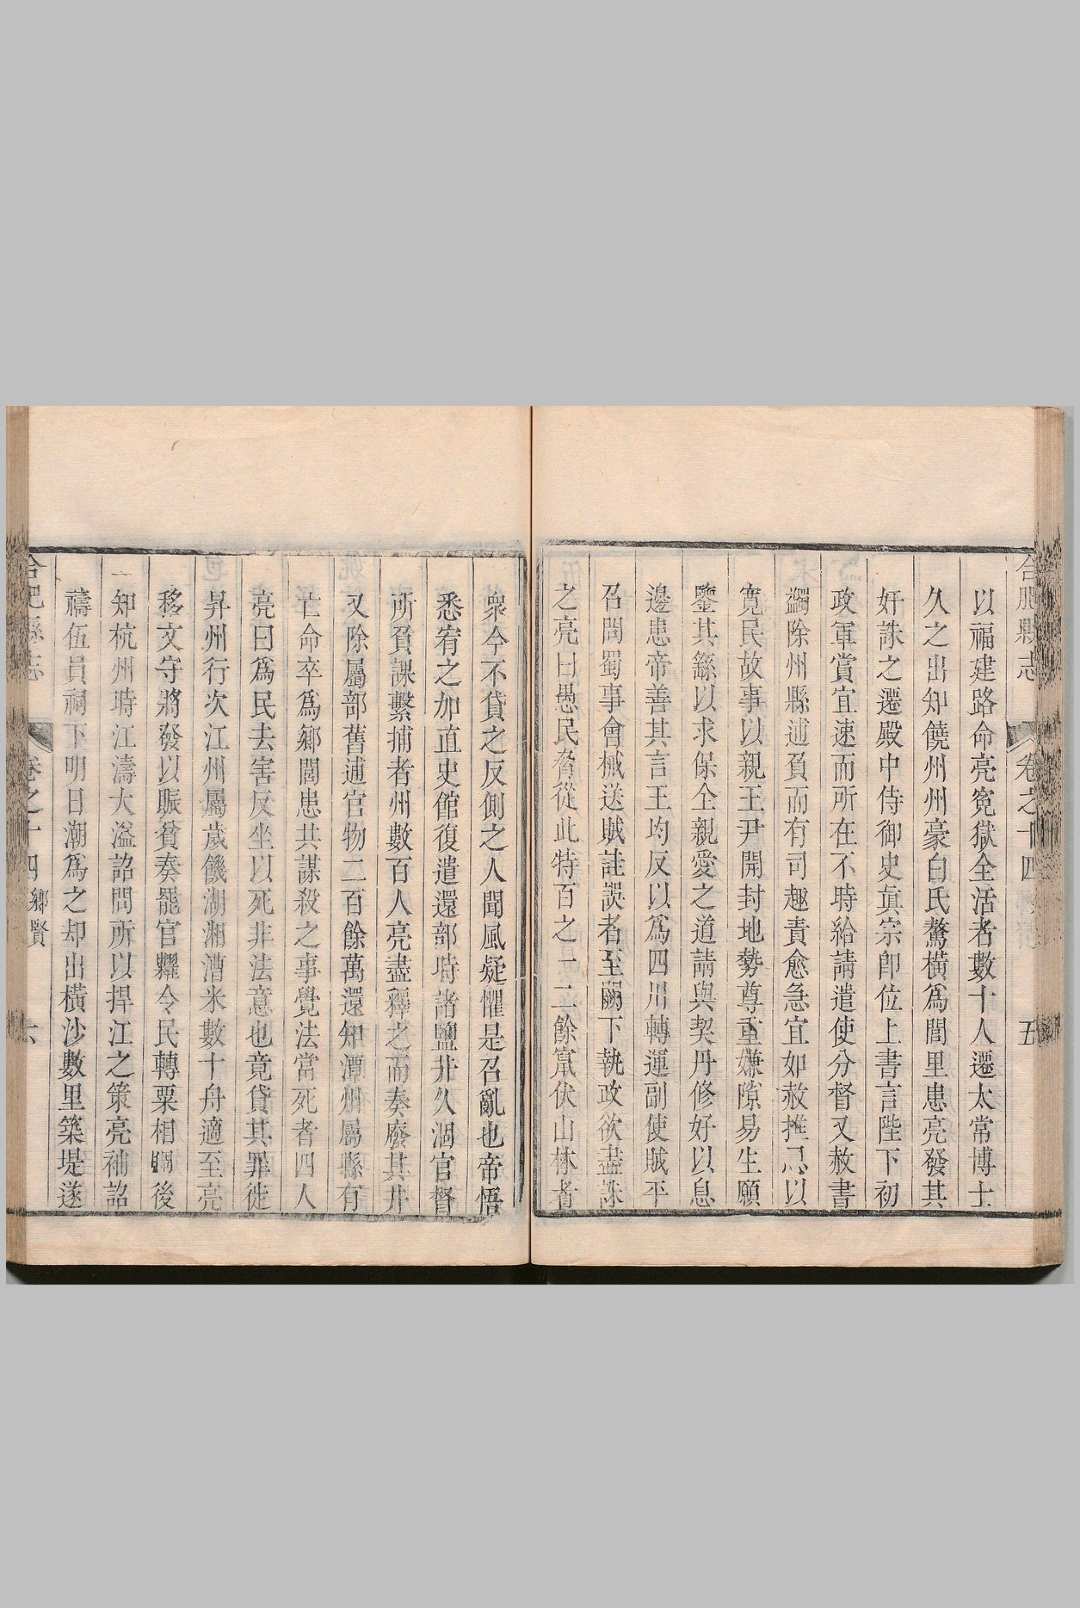 合肥縣志
卷之十四
五
以福建路命亮寃獄全活者數十人遷太常博士
久之出知饒州州豪白氏驁橫爲閭里患亮發其
奸誅之遷殿中侍御史眞宗卽位上書言陛下初
政軍賞宜速而所在不時給請遣使分督又赦書
蠲除州縣逋負而有司趣責愈急宜如赦推恩以
寛民故事以親王尹開封地勢尊重嫌隙易生願
鑒其繇以求保全親愛之道請與契丹修好以息
邊患帝善其言王均反以爲西川轉運副使賊平
召問蜀事會械送賊詿誤者至闕下執政欲盡誅
之亮曰愚民脅從此特百之一二餘竄伏山林者
衆今不貸之反側之人聞風疑懼是召亂也帝悟
悉宥之加直史館復遣還部時諸鹽井久涸官督
所負課繫捕者州數百人亮盡釋之而奏廢其井
又除屬部舊逋官物二百餘萬還知潭州屬縣有
亡命卒爲鄉閭患共謀殺之事覺法當死者四人
亮曰爲民去害反坐以死非法意也竟貸其罪徙
昇州行次江州屬歲饑湖湘漕米數十舟適至亮
移文守將發以賑貧奏罷官糶令民轉粟相賙後
知杭州時江濤大溢詔問所以捍江之策亮袖詔
禱伍員祠下明日潮爲之却出橫沙數里築堤遂
合肥縣志
卷之十四
鄉賢
六